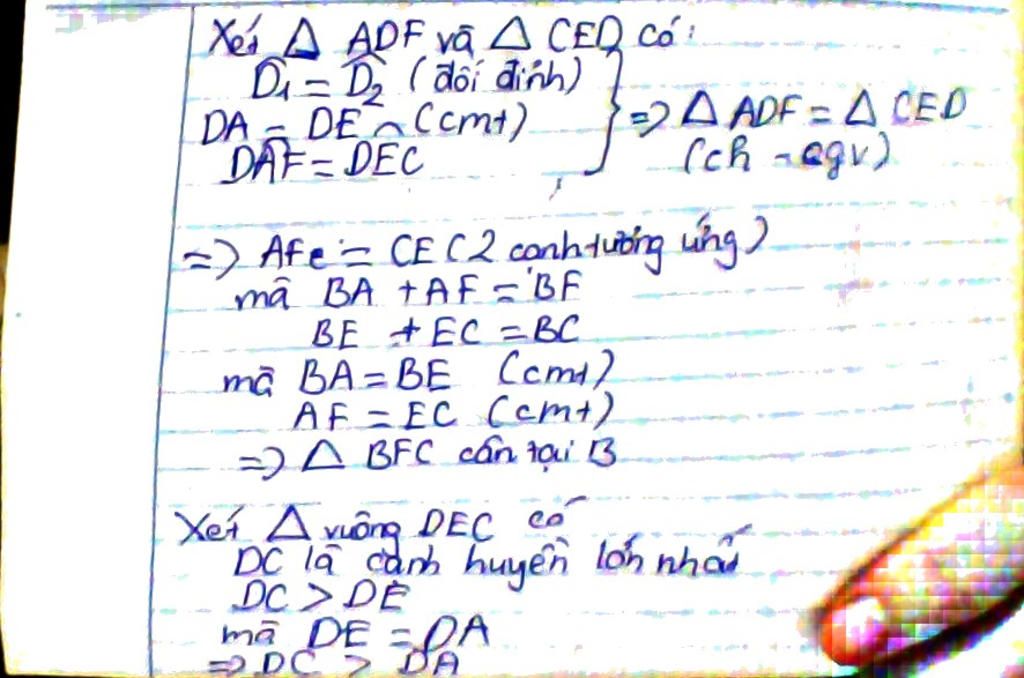 Xét △ ADF và △ CED có:
D̂₁ = D̂₂ (đối đỉnh)
DA = DE (cmt)
DÂF = DÊC
} => △ ADF = △ CED
(ch - cgv)
=> AFe = CE (2 cạnh tương ứng)
mà BA + AF = BF
BE + EC = BC
mà BA = BE (cmt)
AF = EC (cmt)
=> △ BFC cân tại B
Xét △ vuông DEC có
DC là cạnh huyền lớn nhất
DC > DE
mà DE = DA
=> DC > DA